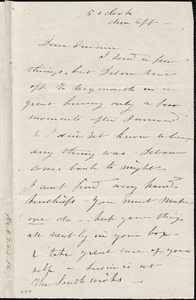 5 o'clock
Dear Emma
I send a few
things, but Debora went
off to Weymouth in a
great hurry only a few
moments after I arrived
& I don't know where
any thing was. Debora
comes back to night.
I cant find any hand-
kerchiefs - You must make
one do. keep your things
all neatly in your box -
& take great care of your
self -
the Southwicks.